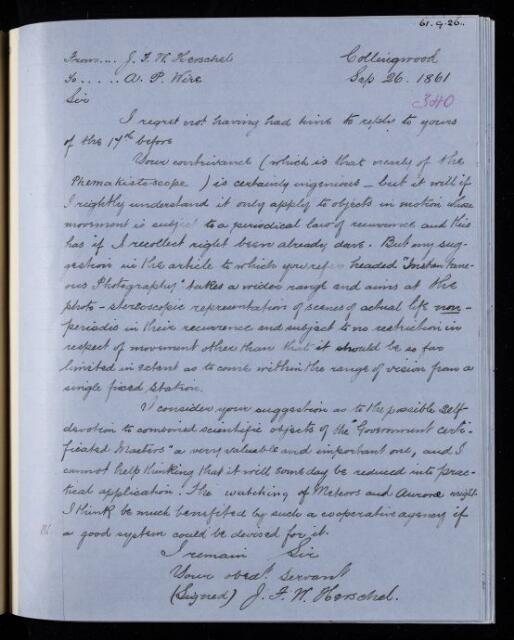 61.9.26.
From.... J. F. W. Herschel Collingwood
To..... A. P. Wire Sep 26. 1861
Sir 340
I regret not having had time to reply to yours
of the 17th before
Your contrivance (which is that nearly of the
Phenakistoscope ) is certainly ingenious - but it will if
I rightly understand it only apply to objects in motion whose
movement is subject to a periodical law of recurrence and this
has if I recollect right been already done. But my sug-
gestion in the article to which you refer headed "Instantane-
ous Photography" takes a wider range and aims at the
photo-stereoscopic representation of scenes of actual life non-
periodic in their recurrence and subject to no restriction in
respect of movement other than that it should be so far
limited in extent as to come within the range of vision from a
single fixed station.
I consider your suggestion as to the possible self
devotion to combined scientific objects of the "Government certi-
ficated Masters" a very valuable and important one, and I
cannot help thinking that it will some day be reduced into prac-
tical application. The watching of Meteors and Aurorae might
I think be much benefited by such a cooperative agency if
a good system could be devised for it.
I remain Sir
Your obedt. servant
(Signed) J. F. W. Herschel.